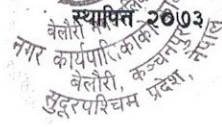 स्थापित २०७३
बेलौरी
नगर कार्यपालिकाको
बेलौरी, कञ्चनपुर
सुदूरपश्चिम प्रदेश, नेपाल